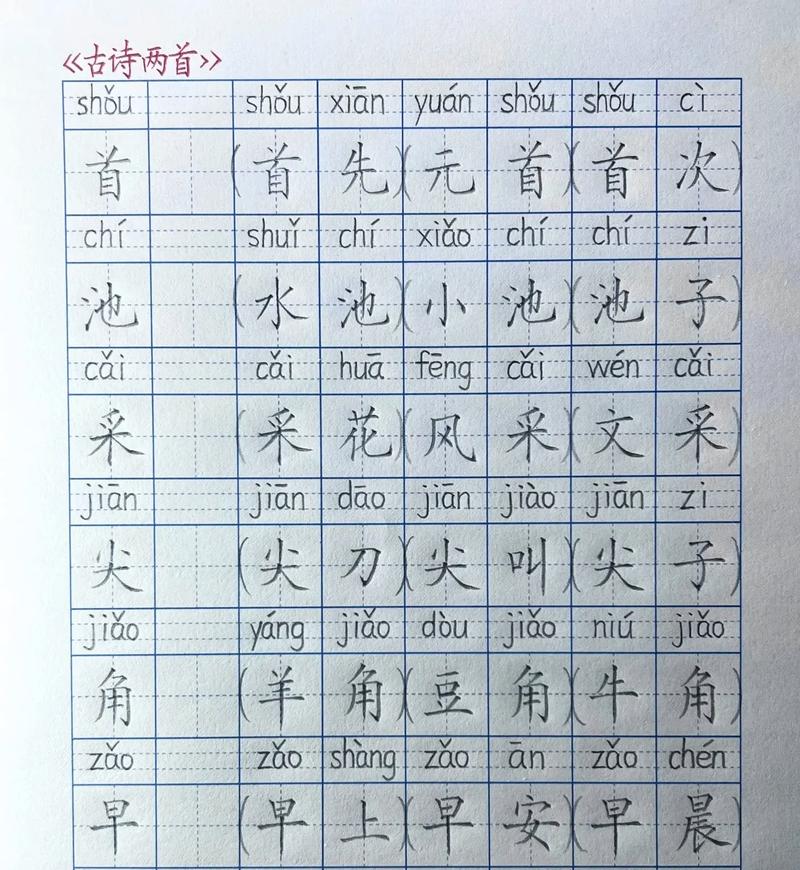 《古诗两首》
shǒu shǒu xiān yuán shǒu shǒu cì
首 (首先)(元首)(首次)
chí shuǐ chí xiǎo chí chí zi
池 (水池)(小池)(池子)
cǎi cǎi huā fēng cǎi wén cǎi
采 (采花)(风采)(文采)
jiān jiān dāo jiān jiào jiān zi
尖 (尖刀)(尖叫)(尖子)
jiǎo yáng jiǎo dòu jiǎo niú jiǎo
角 (羊角)(豆角)(牛角)
zǎo zǎo shàng zǎo ān zǎo chén
早 (早上)(早安)(早晨)